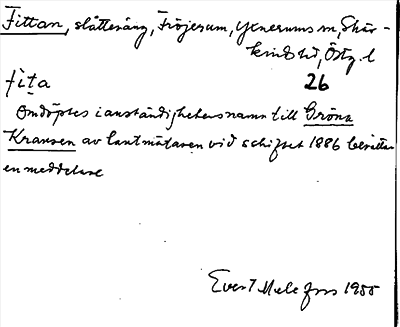 Fittan, slåtteräng, Fröjerum, Yxnerums sn, Skär-
kinds hd, Östg. l
fìta 26
Omdöptes i anständighetens namn till Gröna
Kransen av lantmätaren vid schiftet 1886 berättar
en meddelare
Evert Melefors 1955